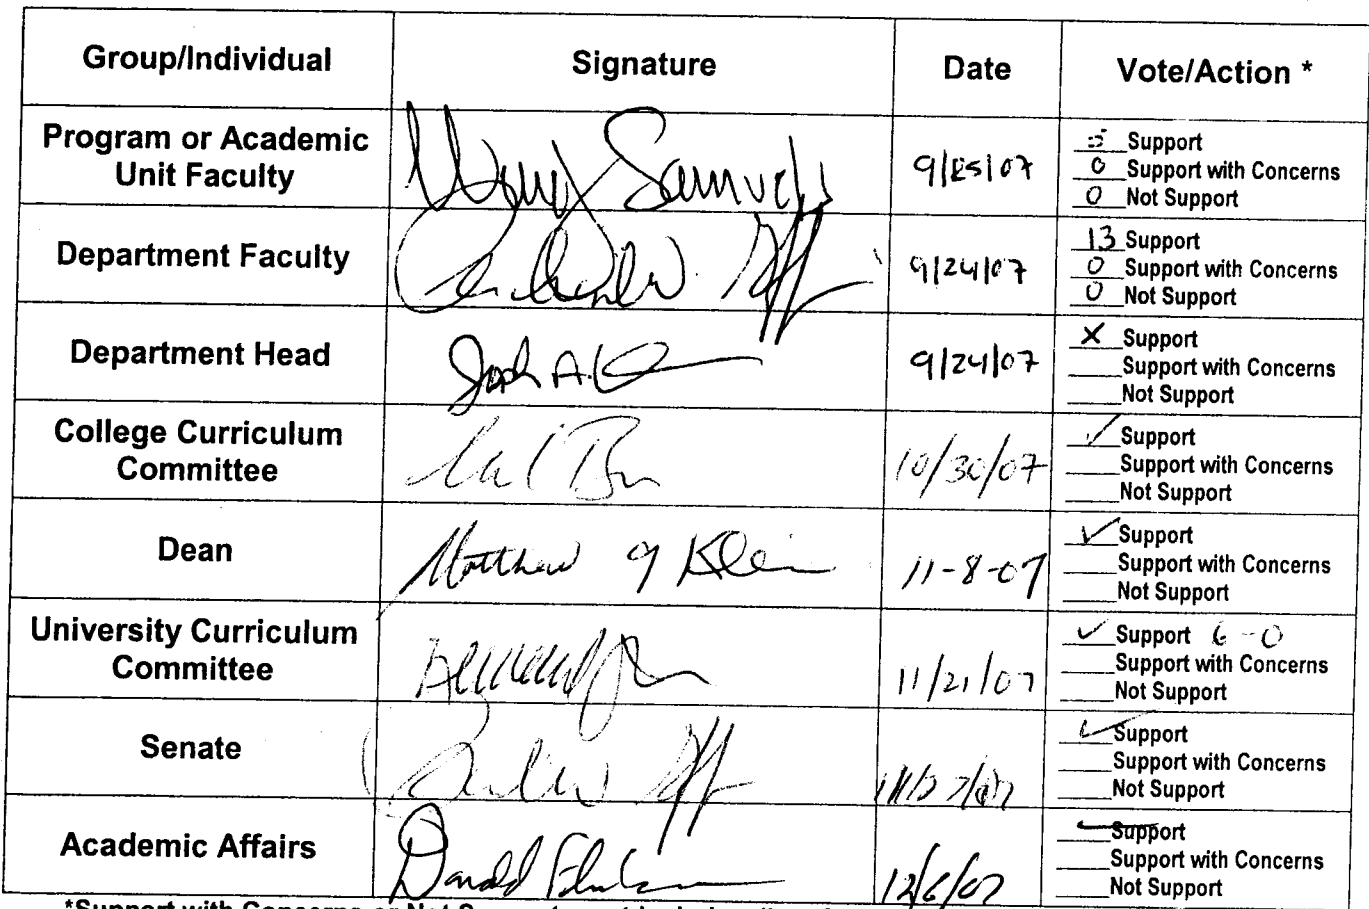 Group/Individual Signature Date Vote/Action *
Program or Academic
Unit Faculty
Samuels
Support
0 Support with Concerns
0 Not Support
Department Faculty
9/24/07
13 Support
0 Support with Concerns
0 Not Support
Department Head
9/24/07
X Support
Support with Concerns
Not Support
College Curriculum
Committee
10/30/07
✓ Support
Support with Concerns
Not Support
Dean
Matthew J Klein
11-8-07
✓ Support
Support with Concerns
Not Support
University Curriculum
Committee
11/21/07
✓ Support 6-0
Support with Concerns
Not Support
Senate
✓ Support
Support with Concerns
Not Support
Academic Affairs
Donald
12/6/07
Support
Support with Concerns
Not Support
*Support with Concerns or Not Support